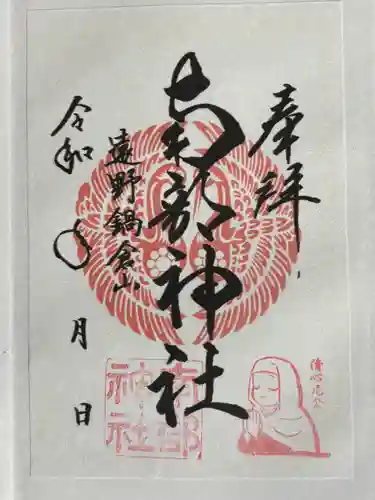 奉拝
南部神社
遠野鍋倉山
令和〇年
月
日
南部
神社
清心尼公